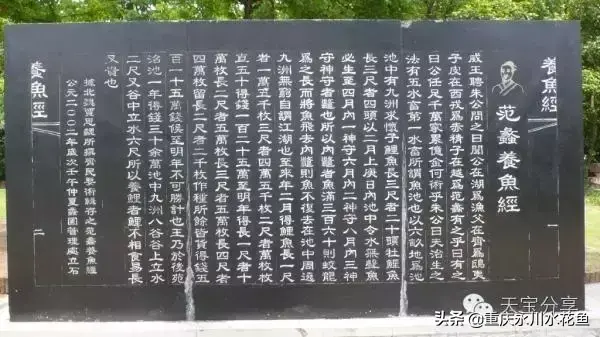 養魚經
一
范蠡養魚經
威王聘朱公問之曰聞公在湖爲漁父在齊爲鴟夷
子皮在西戎爲赤精子在越爲范蠡有之乎曰有之
曰公任足千萬家累億金何術乎朱公曰夫治生之
法有五水畜第一水畜所謂魚池也以六畝地爲池
池中有九洲求懷子鯉魚長三尺者二十頭牡鯉魚
長三尺者四頭以二月上庚日內池中令水無聲魚
必生至四月內一神守六月內二神守八月內三神
守神守者鼈也所以內鼈者魚滿三百六十則蛟龍
爲之長而將魚飛去內鼈則魚不復去在池中周遶
九洲無窮自謂江湖也至來年二月得鯉魚長一尺
者一萬五千枚三尺者四萬五千枚二尺者萬枚枚
直五十得錢一百二十五萬至明年得長一尺者十
萬枚長二尺者五萬枚長三尺者五萬枚長四尺者
四萬枚留長二尺者二千枚作種所餘皆貨得錢五
百一十五萬錢候至明年不可勝計也王乃於後苑
治池一年得錢三十餘萬池中九洲八谷谷上立水
二尺又谷中立水六尺所以養鯉者鯉不相食易長
又貴也
據北魏賈思勰所撰齊民要術輯存之范蠡養魚經
公元二〇〇二年歲次壬午仲夏蠡園管理處立石
養魚經
二
天宝分享
头条@重庆永川水花鱼